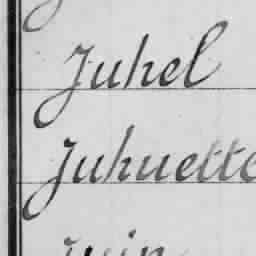 Juhel
Juhuette